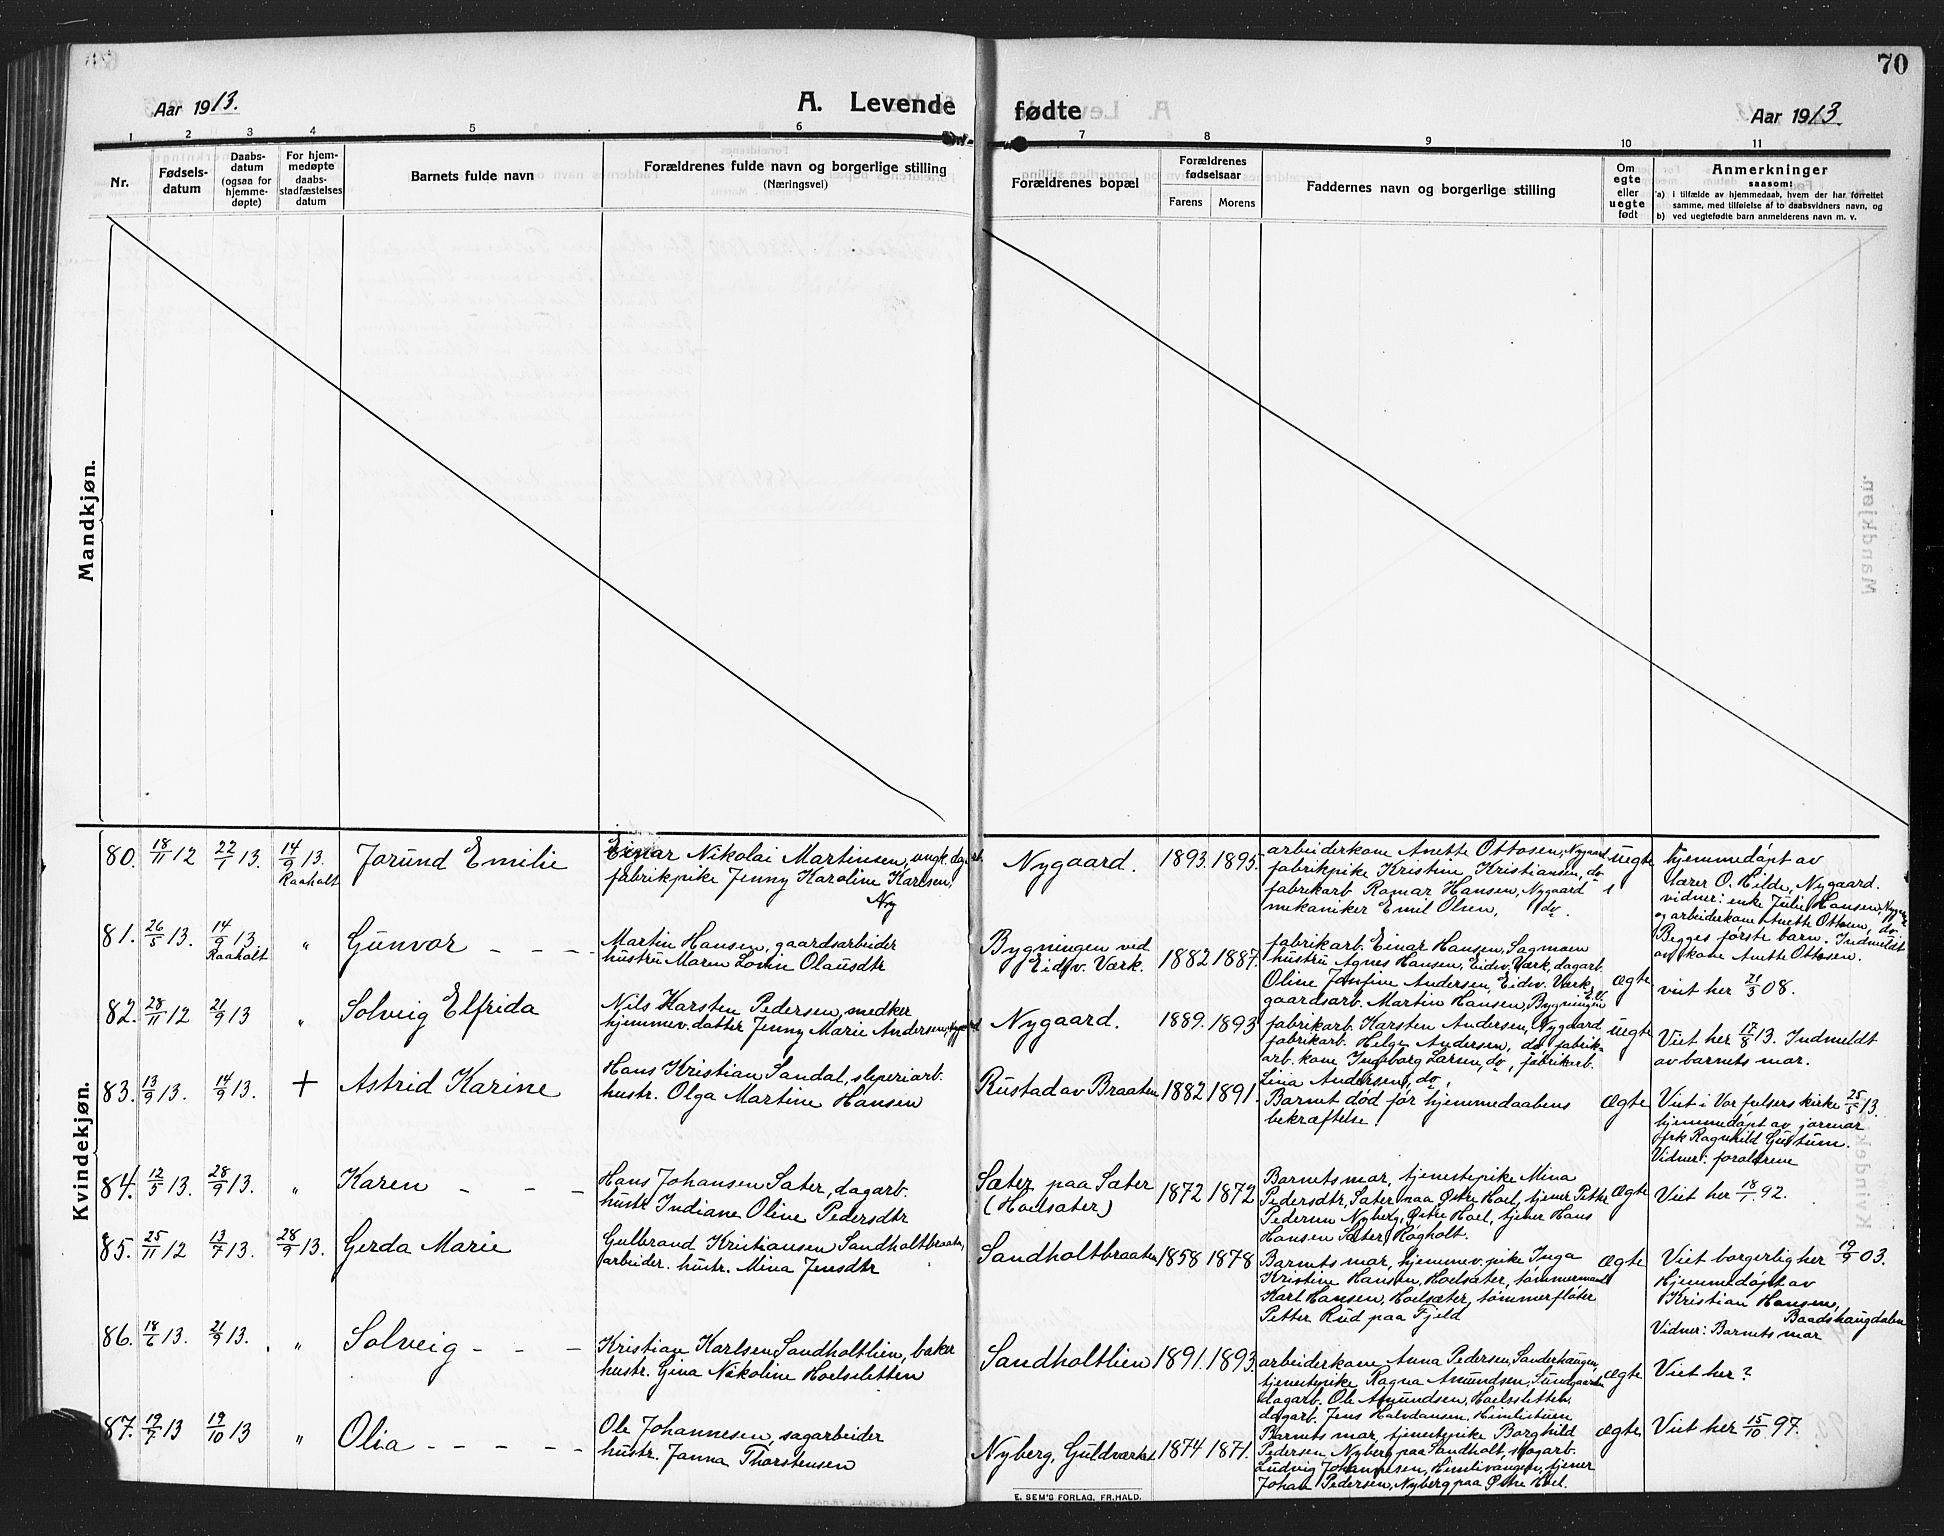 70
Aar 1913.
A. Levende fødte
Aar 1913.
1 2 3 4 5 6 7 8 9 10 11
Nr.
Fødsels-
datum
Daabs-
datum
(ogsaa for
hjemme-
døpte)
For hjem-
medøpte
daabs-
stadfæstelses
datum
Barnets fulde navn
Forældrenes fulde navn og borgerlige stilling
(Næringsvei)
Forældrenes bopæl
Forældrenes
fødselsaar
Farens Morens
Faddernes navn og borgerlige stilling
Om
egte
eller
uegte
født
Anmerkninger
saasom:
a) i tilfælde av hjemmedaab, hvem der har forrettet
samme, med tilføielse af to daabsvidners navn, og
b) ved uegtefødte barn anmelderens navn m. v.
Mandkjøn.
Kvindekjøn.
80. 18/11 12 22/1 13. 14/9 13. Raaholt
Jorund Emilie
Einar Nikolai Martinsen, ungk. dagarb.
fabrikpike Jenny Karoline Karlsen,
Nygaard. 1893. 1895.
arbeiderkone Anette Ottosen, Nygaard
fabrikpike Kristine Kristiansen, do
fabrikarb Ramar Hansen, Nygaard
mekaniker Emil Olsen, do.
uegte
hjemmedøpt av
lærer O. Hilde, Nygaard.
vidner: enke Julie Hansen, Nygaard
og arbeiderkone Anette Ottosen, do.
Begges første barn. Indmeldt
av kone Anette Ottosen.
81. 26/5 13. 14/9 13 Raaholt "
Gunvor - - -
Martin Hansen, gaardsarbeider
hustru Maren Lovin Olausdtr
Bygningen ved
Eidsv. Værk. 1882 1887.
fabrikarb. Einar Hansen, Sagmoen
hustru Agnes Hansen, Eidsv. Værk, dagarb.
Oline Josefine Andersen, Eidsv. Værk,
gaardsarb. Martin Hansen, Bygningen E.V.
ægte
viet her 21/3 08.
82. 28/11 12 21/9 13 "
Solveig Elfrida
Nils Karsten Pedersen, smedker
hjemmev. datter Jenny Marie Andersen, Nygaard
Nygaard. 1889. 1893
fabrikarb. Karsten Andersen, Nygaard
fabrikarb. Helge Andersen, do fabrik-
arb. kone Ingeborg Larsen, do, fabrikarb.
Lina Andersen, do,
uegte
Viet her 17/8 13. Indmeldt
av barnets mor.
83. 13/9 13. 14/9 13. +
Astrid Karine
Hans Kristian Sandal, sliperiarb.
hustr. Olga Martine Hansen
Rustad av Braaten 1882 1891.
Barnet død før hjemmedaabens
bekræftelse.
ægte
Viet i Vor frelsers kirke 25/5 13.
hjemmedøpt av jormor
frk Ragnhild Gustum.
Vidner: forældrene
84. 12/5 13. 28/9 13. "
Karen - - -
Hans Johansen Sater, dagarb.
hustr Indiane Oline Pedersdtr
Sæter paa Sæter
(Hoelsæter) 1872 1872
Barnets mor, tjenestepike Mina
Pedersdtr, Sater paa Østre Hoel, tjener Petter
Pedersen Nyberg, Østre Hoel, tjener Hans
Hansen Sæter, Røgholt.
ægte
Viet her 18/1 92.
85. 25/11 12 13/7 13. 28/9 13.
Gerda Marie
Gulbrand Kristiansen Sandholtbraaten,
arbeider. hustr. Mina Jensdtr
Sandholtbraaten 1858 1878
Barnets mor, hjemmev. pike Inga
Kristine Hansen, Hoelsæter, tømmermand
Karl Hansen, Hoelsæter, tømmerfløter
Petter Rud paa Fjeld
ægte
Viet borgerlig her 19/9 03.
Hjemmedøpt av
Kristian Hansen,
Baadshaugdalen
Vidner: Barnets mor
86. 18/6 13. 21/9 13. "
Solveig - - -
Kristian Karlsen Sandholtlien, baker
hustr. Gina Nikoline Hoelsletten
Sandholtlien 1891. 1893.
arbeiderkone Anna Pedersen, Sanderhaugen,
tjenestepike Ragna Amundsen, Sundgaarden
dagarb. Ole Amundsen, Hoelsletten,
dagarb. Jens Halvdansen, Himlistuen
ægte
Viet her ?
87. 19/7 13 19/10 13 "
Olia - - - - -
Ole Johannesen, sagarbeider
hustr. Janna Thorstensen
Nyberg, Guldværket 1874 1871.
Barnets mor, tjenestepike Borghild
Pedersen, Nyberg paa Sandholt, skogarb.
Ludvig Johannesen, Himlivangen, tjener
Johan Pedersen, Nyberg paa Østre Hoel.
ægte
Viet her 15/10 97.
E. SEM'S FORLAG, FR.HALD.